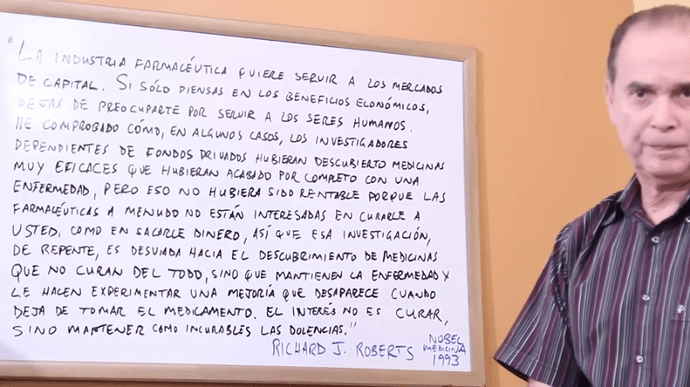 "LA INDUSTRIA FARMACÉUTICA QUIERE SERVIR A LOS MERCADOS
DE CAPITAL. SI SÓLO PIENSAS EN LOS BENEFICIOS ECONÓMICOS,
DEJAS DE PREOCUPARTE POR SERVIR A LOS SERES HUMANOS.
HE COMPROBADO CÓMO, EN ALGUNOS CASOS, LOS INVESTIGADORES
DEPENDIENTES DE FONDOS PRIVADOS HUBIERAN DESCUBIERTO MEDICINAS
MUY EFICACES QUE HUBIERAN ACABADO POR COMPLETO CON UNA
ENFERMEDAD, PERO ESO NO HUBIERA SIDO RENTABLE PORQUE LAS
FARMACÉUTICAS A MENUDO NO ESTÁN INTERESADAS EN CURARLE A
USTED, COMO EN SACARLE DINERO, ASÍ QUE ESA INVESTIGACIÓN,
DE REPENTE, ES DESVIADA HACIA EL DESCUBRIMIENTO DE MEDICINAS
QUE NO CURAN DEL TODO, SINO QUE MANTIENEN LA ENFERMEDAD Y
LE HACEN EXPERIMENTAR UNA MEJORÍA QUE DESAPARECE CUANDO
DEJA DE TOMAR EL MEDICAMENTO. EL INTERÉS NO ES CURAR,
SINO MANTENER COMO INCURABLES LAS DOLENCIAS."
RICHARD J. ROBERTS
NOBEL
MEDICINA
1993